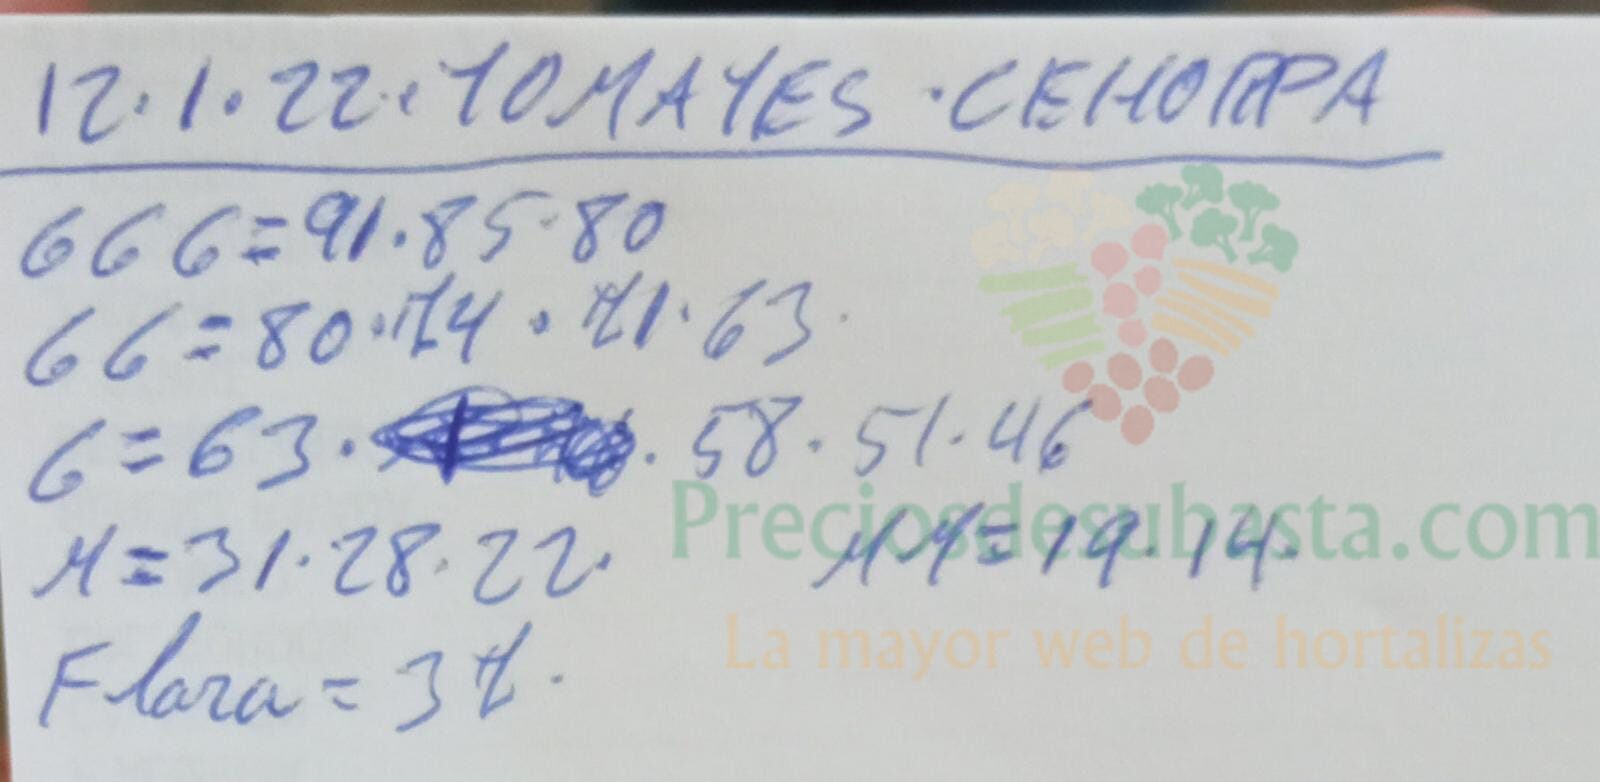 12.1.22. TOMATES. CEHORPA
666=91.85.80
66=80.74.71.63.
6=63. . 58.51.46
M=31.28.22. MM=19.14.
Flora=37.
Preciosdesubasta.com
La mayor web de hortalizas